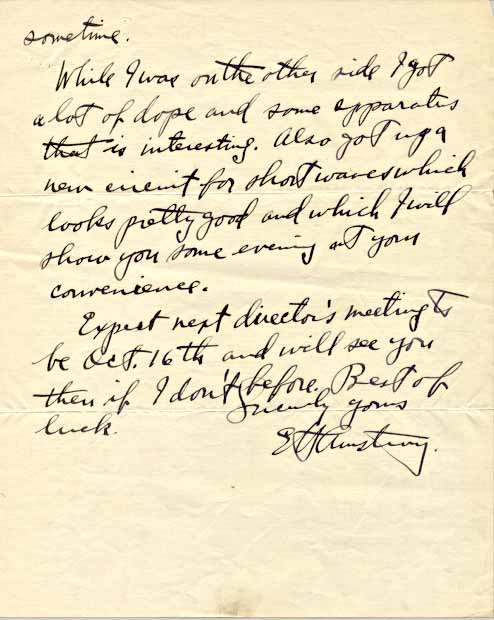 sometime.
While I was on the other side I got
a lot of dope and some apparatus
that is interesting. Also got up a
new circuit for short waves which
looks pretty good and which I will
show you some evening at your
convenience.
Expect next director's meeting to
be Oct. 16th and will see you
then if I don't before. Best of
luck.
Sincerely yours
E H Armstrong.